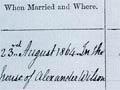 When Married and Where.
23rd August 1864. In the
house of Alexander Wilson